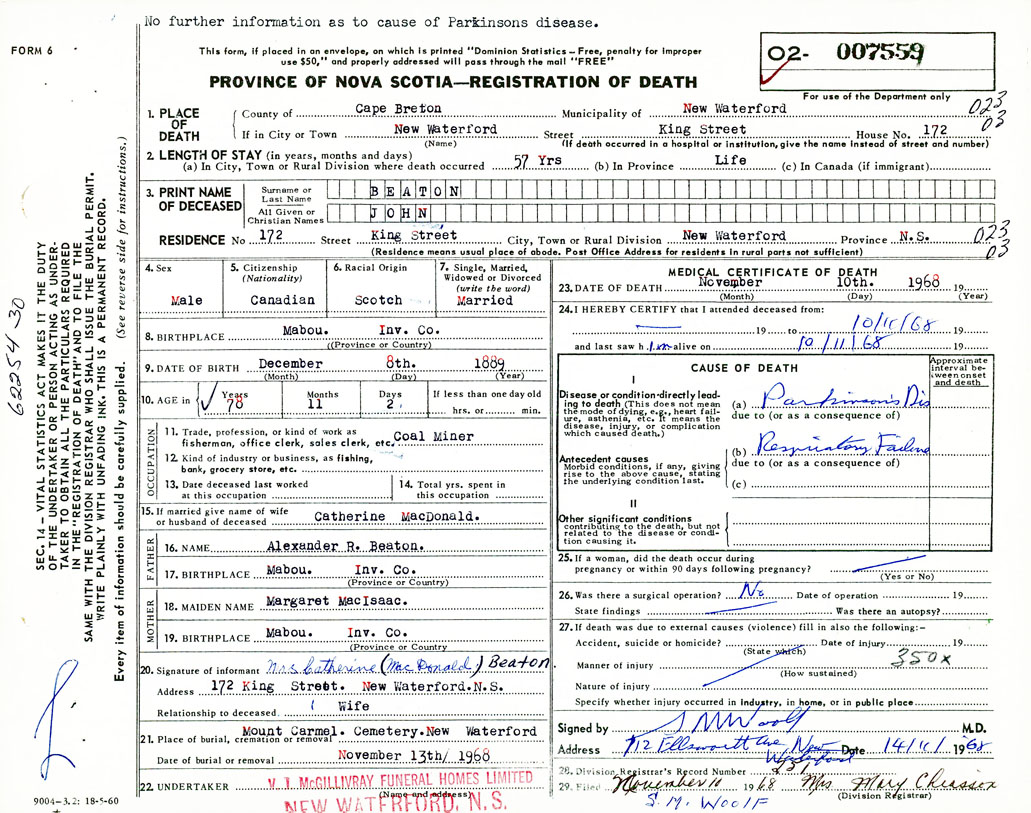 No further information as to cause of Parkinsons disease.
FORM 6
This form, if placed in an envelope, on which is printed "Dominion Statistics – Free, penalty for improper
use $50," and properly addressed will pass through the mail "FREE"
O2- 007559
PROVINCE OF NOVA SCOTIA—REGISTRATION OF DEATH
For use of the Department only
023
03
1. PLACE OF DEATH
County of Cape Breton Municipality of New Waterford
If in City or Town New Waterford Street King Street House No. 172
(Name) (If death occurred in a hospital or institution, give the name instead of street and number)
2. LENGTH OF STAY (in years, months and days)
(a) In City, Town or Rural Division where death occurred 57 Yrs (b) In Province Life (c) In Canada (if immigrant)
3. PRINT NAME OF DECEASED
Surname or Last Name BEATON
All Given or Christian Names JOHN
RESIDENCE No 172 Street King Street City, Town or Rural Division New Waterford Province N.S.
(Residence means usual place of abode. Post Office Address for residents in rural parts not sufficient)
023
03
4. Sex
Male
5. Citizenship
(Nationality)
Canadian
6. Racial Origin
Scotch
7. Single, Married,
Widowed or Divorced
(write the word)
Married
8. BIRTHPLACE Mabou. Inv. Co.
((Province or Country)
9. DATE OF BIRTH December 8th. 1889
(Month) (Day) (Year)
10. AGE in Years Months Days If less than one day old
78 11 2 hrs. or min.
OCCUPATION
11. Trade, profession, or kind of work as
fisherman, office clerk, sales clerk, etc. Coal Miner
12. Kind of industry or business, as fishing,
bank, grocery store, etc.
13. Date deceased last worked
at this occupation
14. Total yrs. spent in
this occupation
15. If married give name of wife
or husband of deceased Catherine MacDonald.
FATHER
16. NAME Alexander R. Beaton.
17. BIRTHPLACE Mabou. Inv. Co.
(Province or Country)
MOTHER
18. MAIDEN NAME Margaret MacIsaac.
19. BIRTHPLACE Mabou. Inv. Co.
(Province or Country)
20. Signature of informant Mrs Catherine (MacDonald) Beaton.
Address 172 King Street. New Waterford.N.S.
Relationship to deceased. Wife
21. Place of burial, cremation or removal Mount Carmel. Cemetery.New Waterford
Date of burial or removal November 13th/ 1968
22. UNDERTAKER V. J. McGILLIVRAY FUNERAL HOMES LIMITED
(Name and address)
NEW WATERFORD, N.S.
MEDICAL CERTIFICATE OF DEATH
23. DATE OF DEATH November 10th. 1968 19
(Month) (Day) (Year)
24. I HEREBY CERTIFY that I attended deceased from:
19 to 10/11/68 19
and last saw h im alive on 10/11/68 19
CAUSE OF DEATH
Approximate
interval be-
tween onset
and death
I
Disease or condition directly lead-
ing to death (This does not mean
the mode of dying, e.g., heart fail-
ure, asthenia, etc. It means the
disease, injury, or complication
which caused death.)
(a) Parkinson's Dis
due to (or as a consequence of)
Antecedent causes
Morbid conditions, if any, giving
rise to the above cause, stating
the underlying condition last.
(b) Respiratory Failure
due to (or as a consequence of)
(c)
II
Other significant conditions
contributing to the death, but not
related to the disease or condi-
tion causing it.
25. If a woman, did the death occur during
pregnancy or within 90 days following pregnancy?
(Yes or No)
26. Was there a surgical operation? No Date of operation 19
State findings Was there an autopsy?
27. If death was due to external causes (violence) fill in also the following:–
Accident, suicide or homicide? Date of injury 19
(State which)
350x
Manner of injury
(How sustained)
Nature of injury
Specify whether injury occurred in industry, in home, or in public place
Signed by S M Woolf M.D.
Address 712 Ellsworth Ave New Waterford Date 14/11/ 1968
28. Division Registrar's Record Number
29. Filed November 10 1968 Mrs Mary Chiasson
(Division Registrar)
S. M. WOOLF
SEC. 14 – VITAL STATISTICS ACT MAKES IT THE DUTY
OF THE UNDERTAKER OR PERSON ACTING AS UNDER-
TAKER TO OBTAIN ALL THE PARTICULARS REQUIRED
IN THE "REGISTRATION OF DEATH" AND TO FILE THE
SAME WITH THE DIVISION REGISTRAR WHO SHALL ISSUE THE BURIAL PERMIT.
WRITE PLAINLY WITH UNFADING INK. THIS IS A PERMANENT RECORD.
Every item of information should be carefully supplied. (See reverse side for instructions.)
62254-30
9004–3.2: 18-5-60